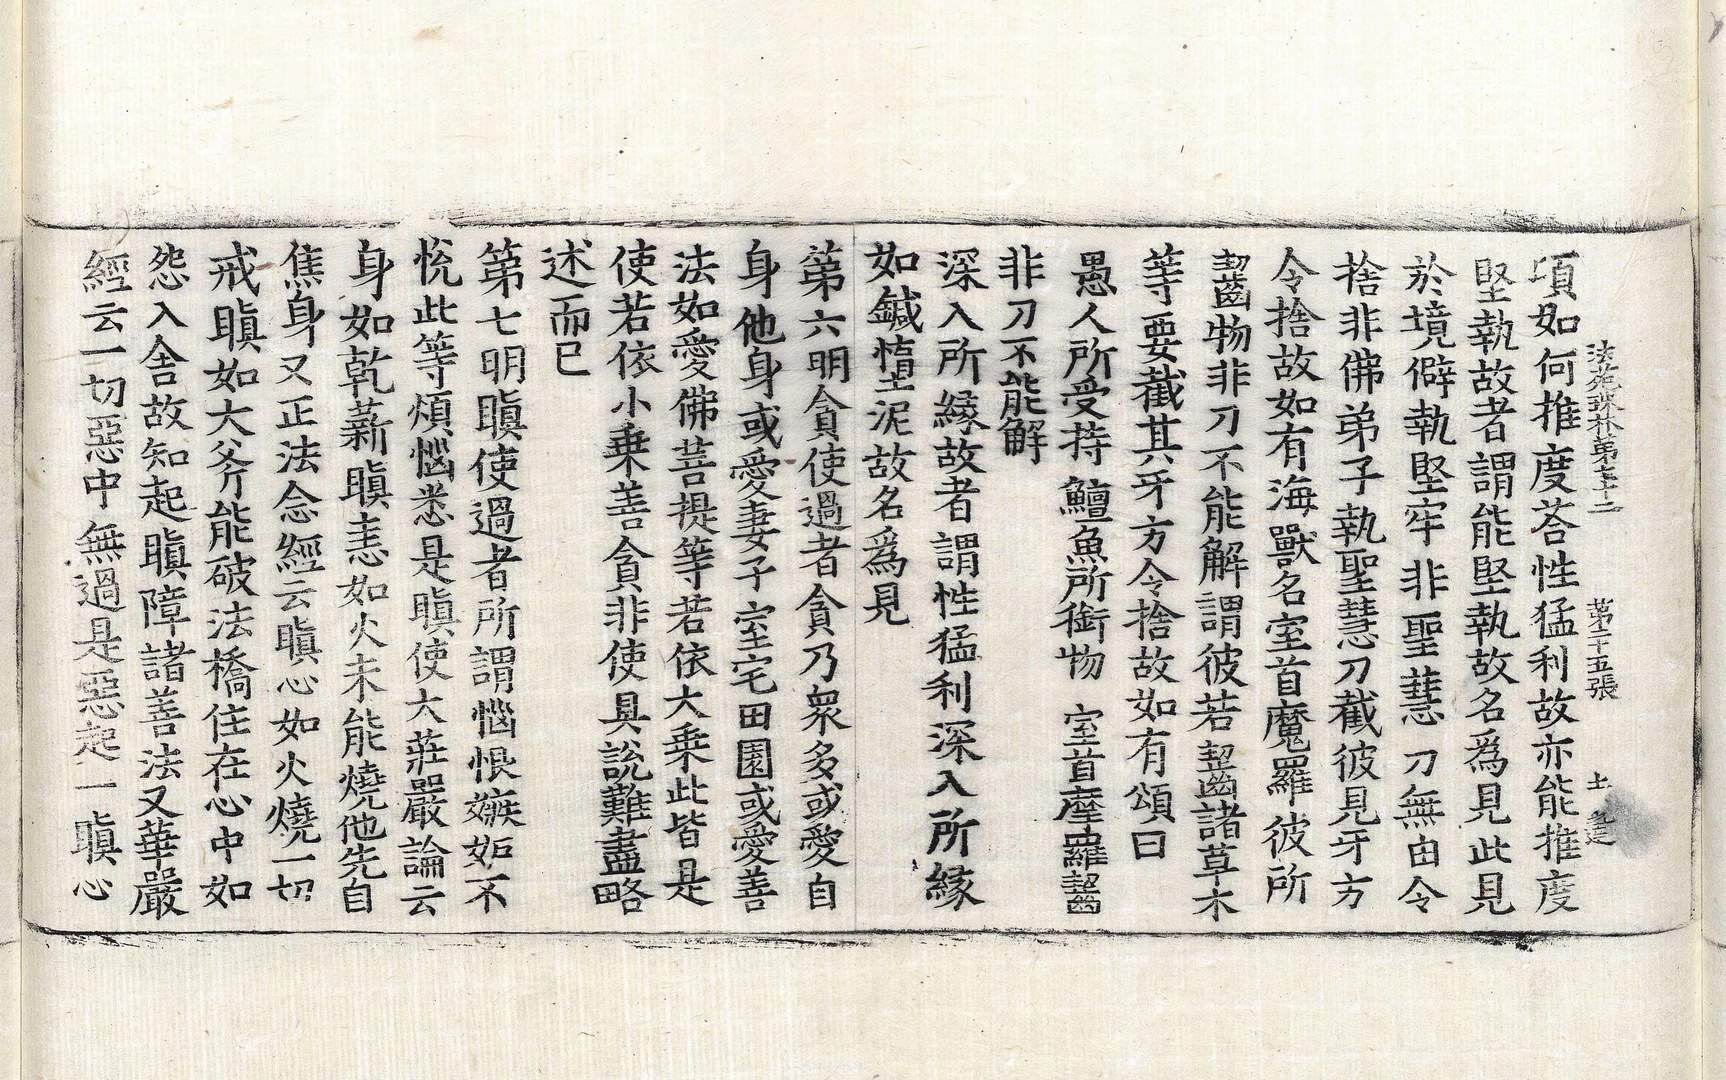 法苑珠林第七十二 第二十五張
頃如何推度荅性猛利故亦能推度
堅執故者謂能堅執故名爲見此見
於境僻執堅牢非聖慧刀無由令
捨非佛弟子執聖慧刀截彼見牙方
令捨故如有海獸名室首魔羅彼所
齧物非刀不能解謂彼若齧諸草木
等要截其牙方令捨故如有頌曰
愚人所受持 鱣魚所銜物 室首摩羅齧
非刀不能解
深入所緣故者謂性猛利深入所緣
如鍼墮泥故名爲見
第六明貪使過者貪乃衆多或愛自
身他身或愛妻子室宅田園或愛善
法如愛佛菩提等若依大乗此皆是
使若依小乗善貪非使具說難盡略
述而已
第七明瞋使過者所謂惱恨嫉妬不
悅此等煩惱悉是瞋使大莊嚴論云
身如乾薪瞋恚如火未能燒他先自
焦身又正法念經云瞋心如火燒一切
戒瞋如大斧能破法橋住在心中如
怨入舍故知起瞋障諸善法又華嚴
經云一切惡中無過是惡起一瞋心